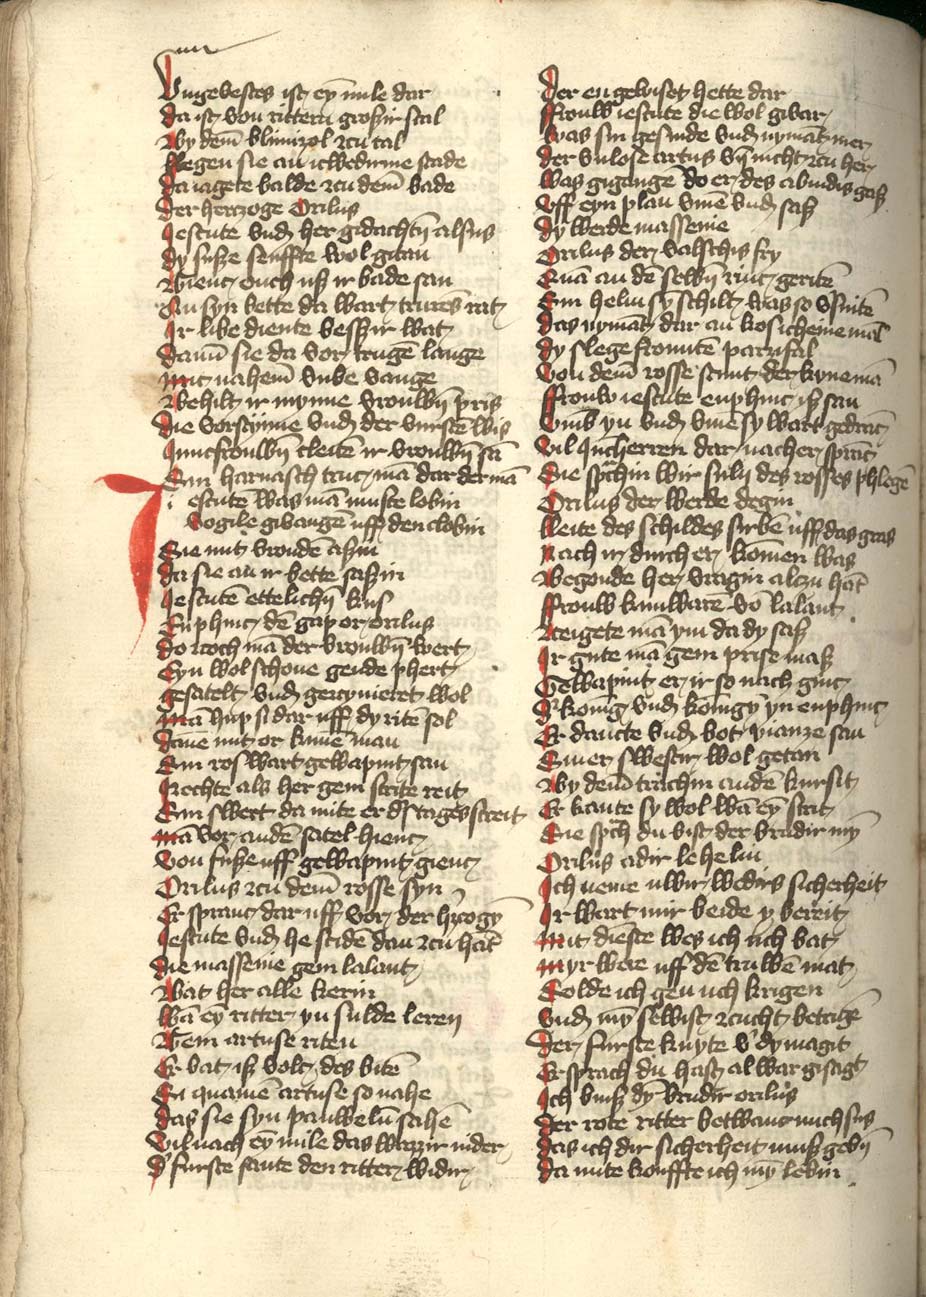 Vngevestes ist ey mile dar
da ist von rittern groszir scal
By dem blimizol zcu tal
Legen sie an icwedirme stade
da iagete balde zcu dem bade
der herczoge Orilus
Jescute vnd her gidachtn alsus
dy susze senffte wol gitan
Gienc ouch usz ir bade san
An syn bette da wart trures rat
Jr libe diente bessir wat
dann sie da vor truge lange
Mit nahem vmbe vange
Behilt ir mynne vrouwn pris
die vorstynne vnd der vurste wis
Juncfrouwin cleite ir vrouwin sa
Sin harnasch truc ma dar dem ma
iescute was ma muste lobin
vogile givange uff den clobin
Sie mit vroude aszin
da sie an ir bette saszin
Jescute ettelichn kus
Enphinc de gap or orilus
do zcoch ma der vrouwin wert
Eyn wol schone gende phert
gesatelt vnd gerçymetet wol
Ma hup si dar uff dy rite sol
dane mit or kune man
Sin ros wart gewapint san
Rechte als her gem strite reit
Sin swert da mite er ds tages streit
Ma vor an den satel hienc
Von fusze uff gewapint gienc
Orilus zcu dem rosse syn
Er spranc dar uff vor der hrcogy
Jescute vnd he scide dan zcu hat
die massenie gem lalant
Bat her alle kerin
Wa ey ritter yn sulde leren
Gem artuse riten
Er bat isz volc des bite
Si quame artuse so nahe
das sie syn pauwelu sahe
Vil nach ey mile das wazzir nider
d' furste sante den ritter widir
Der en gewiset hette dar
Frouw iescute die wol givar
Was sin gesinde vnd nyma mer
der valose artus vn nicht zcu her
Was gigange do er des abindis gasz
Uff eyn plan vme vnd sasz
dy werde massenie
Orilus der valschis fry
Qua an de selbin rinc gerite
Sin helm sy schilt was so vsnite
das nyma dar an kos cheine mal
dy slege fromte parzifal
Von dem rosse stunt der kyne ma
Frouw iescute enphinc isz san
Vmb yn vnd vme sy wart gedrac
Vil juncherren dar nacher sprac
Sie sprachin wir sulin des rosses phlege
Orilus der werde degin
Leite des schildes sirbe uff das gras
Nach ir durch er komen was
Begonde her vragin alzu hat
Frouw kunware vo lalant
Zceigete ma ym da dy sasz
Jr gute ma gem prise masz
Gewapint er ir so nach ginc
dr konig vnd konigy yn enphinc
Er dancte vnd bot vianze san
Siner swestir wol getan
By dem trachin an de kursit
Er kante sy wol wa ey strit
Sie sprach du bist der brudir my
Orilus adir lehelin
Jch neme uwir wedirs sicherheit
Jr wart mir beide y bereit
Mit dieste wes ich uch bat
Myr were uff de truwe mat
Solde ich gen uch krigen
Vnd my selbist zcucht betrige
Der furste knyte vr dy magit
Er sprach du hast al war gisagt
Jch binsz dy brudir orilus
Der rote ritter betwanc mich sus
das ich dir sicherheit musz gebin
da mite kouffte ich my lebin